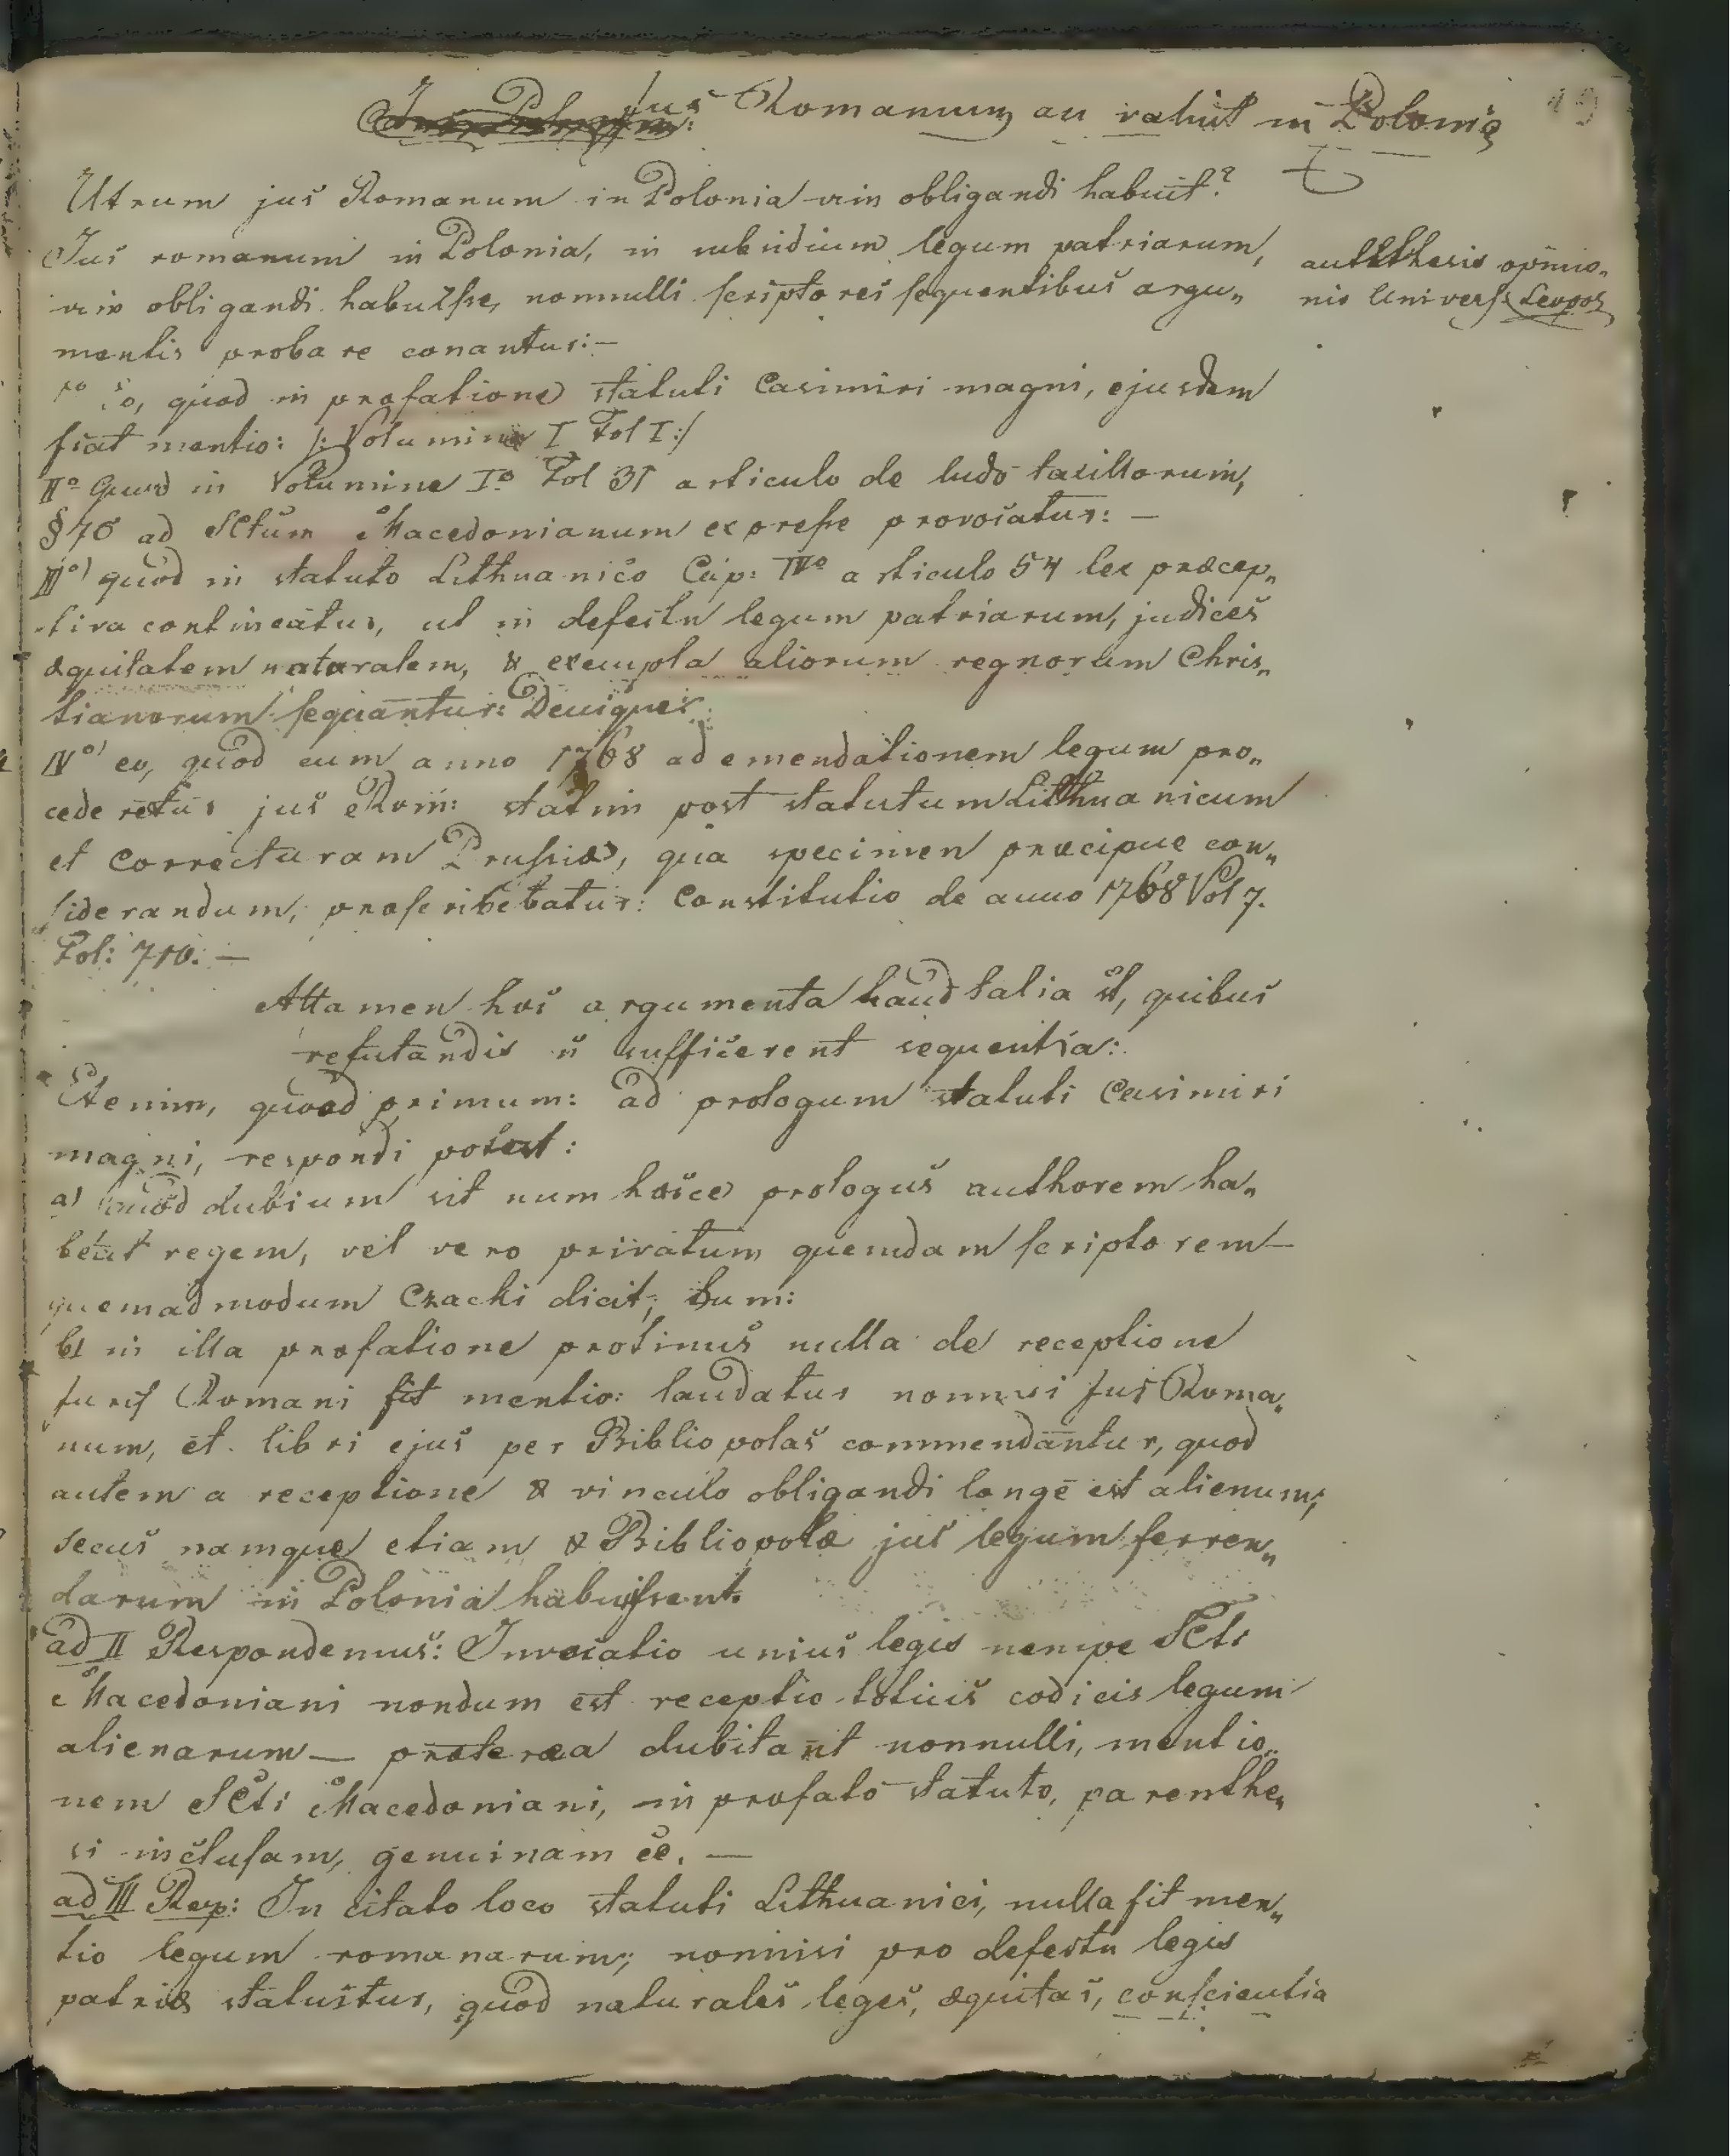 Jus Romanum an valuit in Polonia
19
Utrum jus Romanum in Polonia vim obligandi habuit?
Jus romanum in Polonia, in subsidium legum patriarum,
vim obligandi habuisse, nonnulli scriptores sequentibus argu„
mentis probare conantur:—
antithesis opinio„
nis Univers: Leopol
eo, quod in præfatione statuti Casimiri magni, ejusdem
fiat mentio: /: Volumine I Fol I :/
IIo Quod in Volumine Io Fol 31 articulo de ludo taxillorum,
§ 76 ad SCtum Macedonianum expresse provocatur: —
IIIo) quod in statuto Lithuanico Cap: IVo articulo 54 lex præcep„
tiva contineatur, ut in defectu legum patriarum, judices
æquitatem naturalem, & exempla aliorum regnorum Chris„
tianorum sequantur: Denique
IVo) eo, quod cum anno 1768 ad emendationem legum pro„
cederetur jus Rom: statim post statutum Lithuanicum
et correcturam Prussiæ, qua specimen præcipue con„
siderandum, præscribebatur: Constitutio de anno 1768 Vol 7.
Fol: 710. —
Attamen hos argumenta haud talia st, quibus
refutandis n̄ sufficerent sequentia:
Etenim, quoad primum: ad prologum statuti Casimiri
magni, respondi potest:
a) quod dubium sit num hosce prologus authorem ha„
beat regem, vel vero privatum quemdam scriptorem —
quemadmodum Czacki dicit; tum:
b) in illa præfatione protinus nulla de receptione
Juris Romani fit mentio: laudatur nonnisi Jus Roma„
num, et libri ejus per Bibliopolas commendantur, quod
autem a receptione & vinculo obligandi longe est alienum;
secus namque etiam & Bibliopolæ jus legum ferren„
darum in Polonia habuissent.
ad II Respondemus: Invocatio unius legis nempe SCti
Macedoniani nondum est receptio totius codicis legum
alienarum — præterea dubitant nonnulli, mentio„
nem SCti Macedoniani, in præfato statuto, parenthe„
si inclusam, genuinam ee. —
ad III Resp: In citato loco statuti Lithuanici, nulla fit men„
tio legum romanarum; nonnisi pro defectu legis
patriæ statuitur, quod naturales leges, æquitas, conscientia